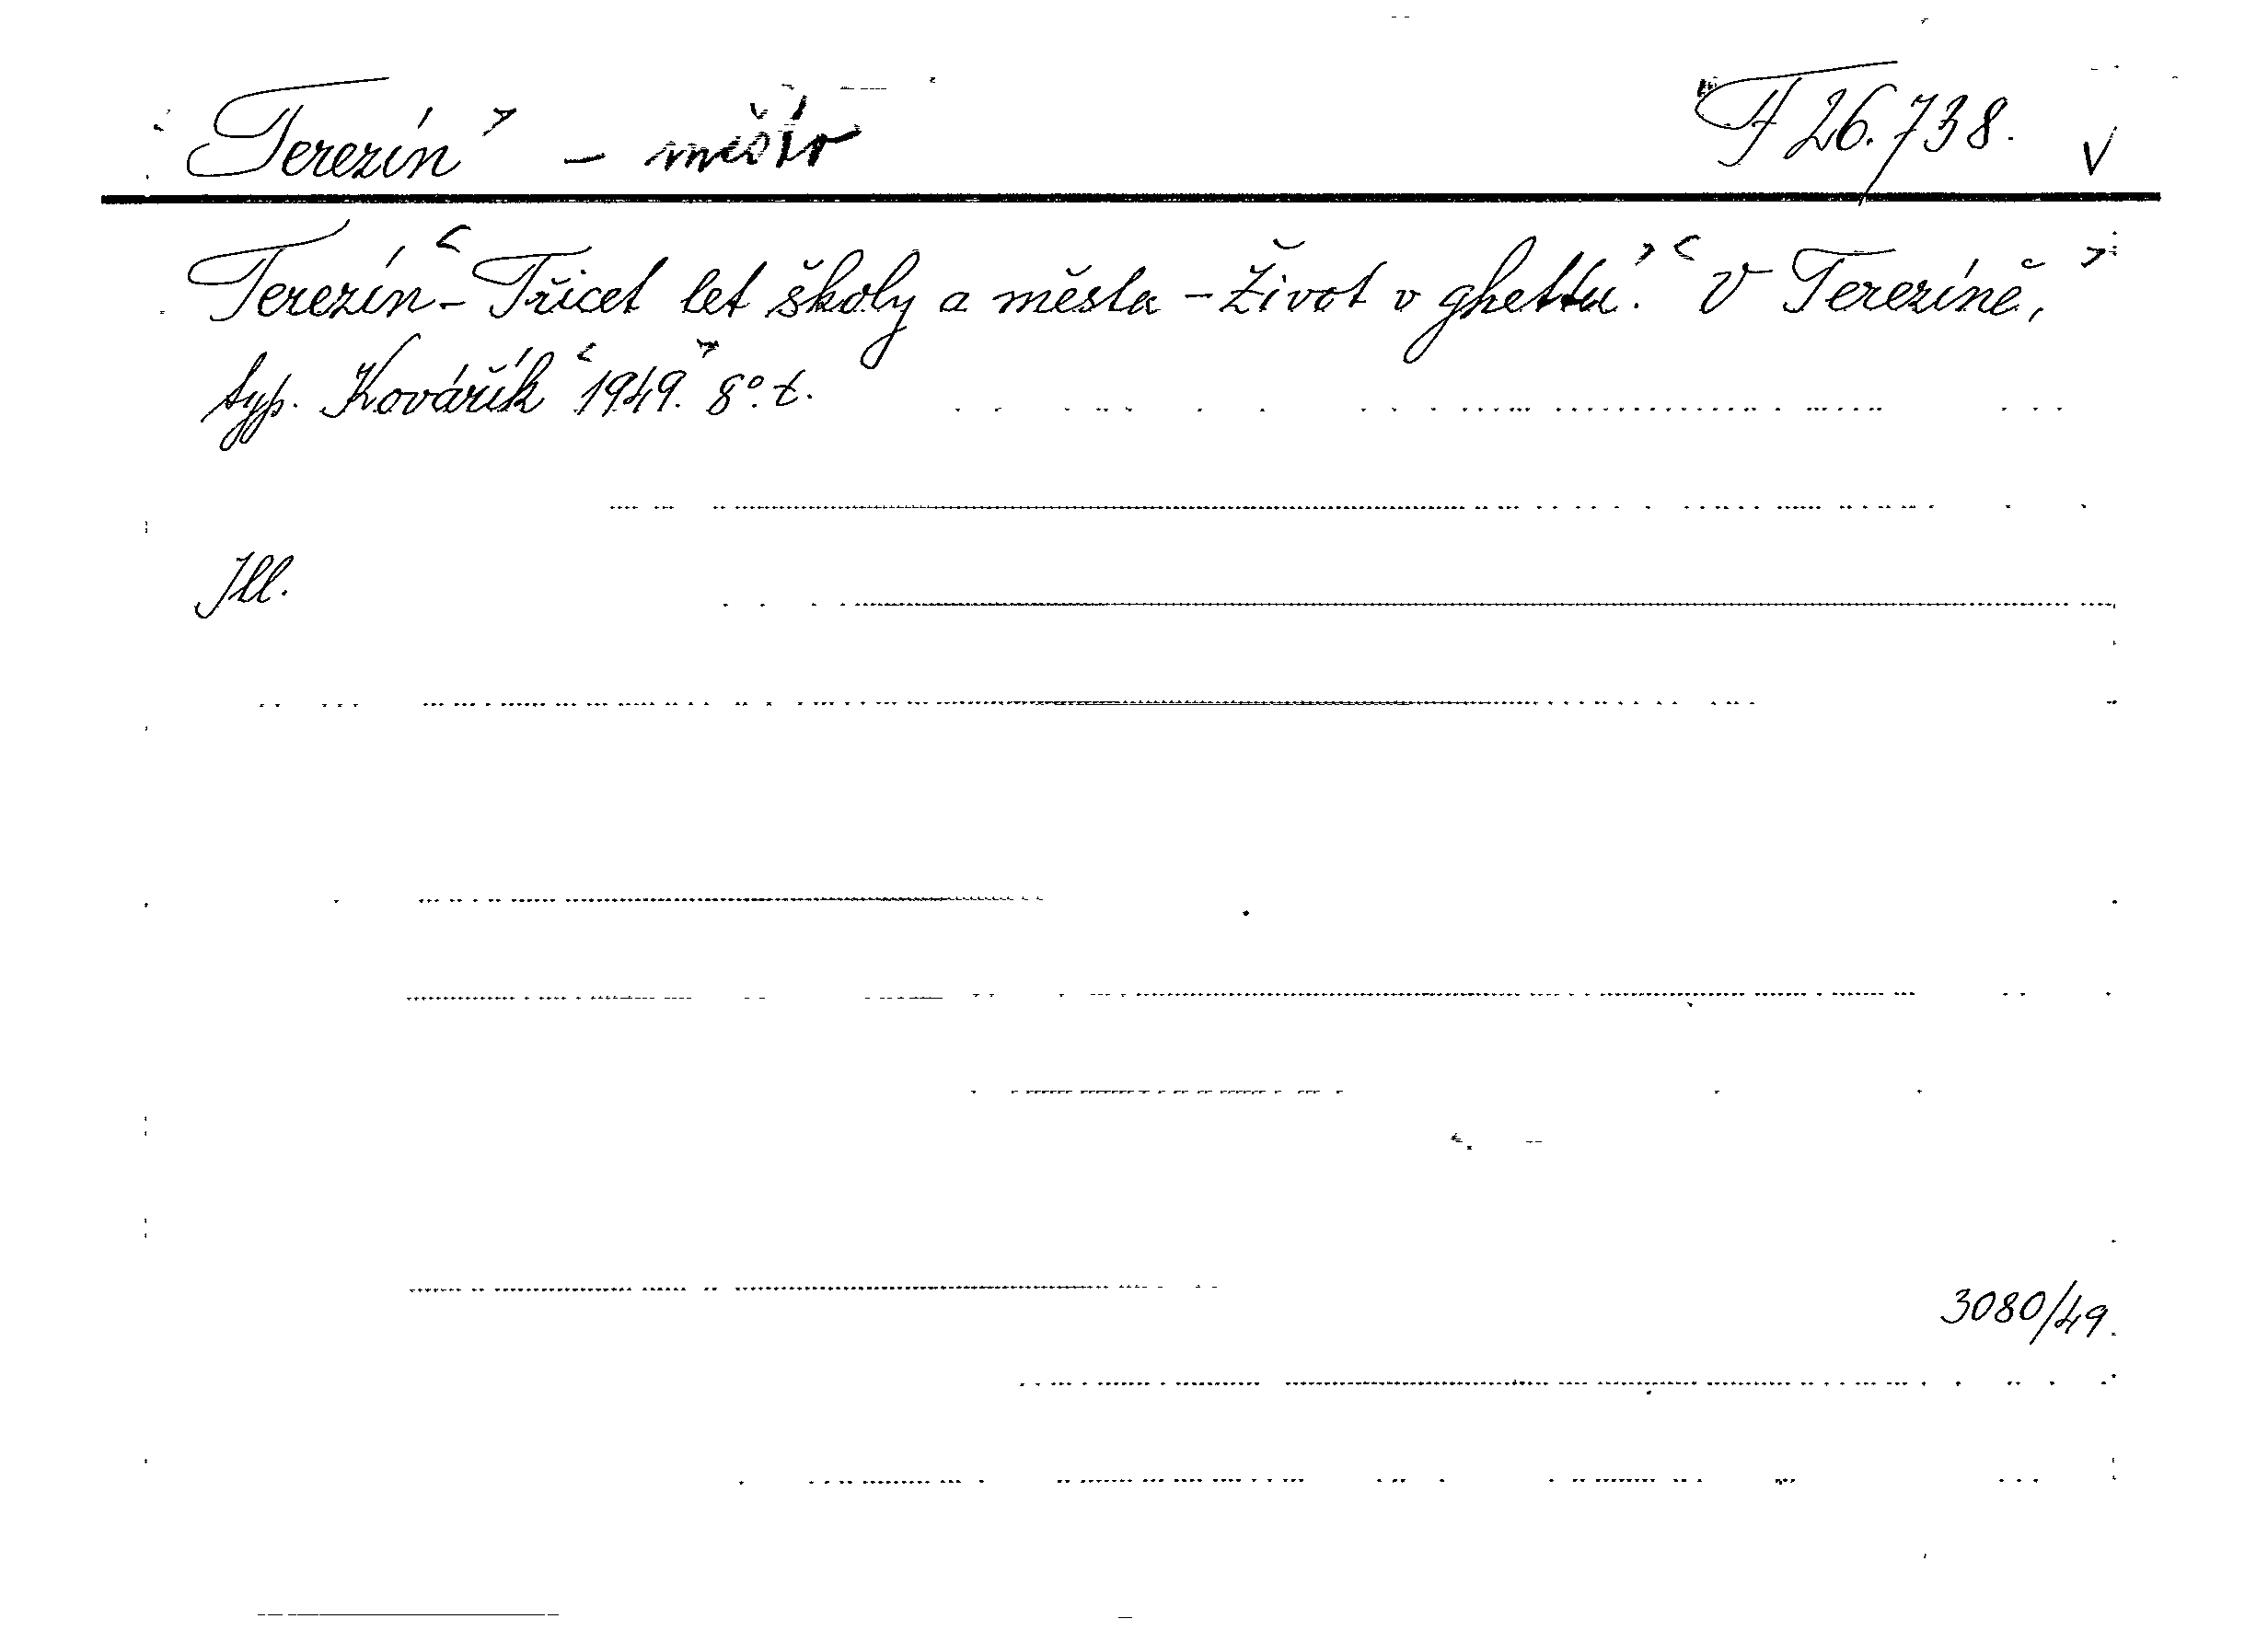 Terezín - město F 26.738. v
Terezín - Třicet let školy a města - Život v ghettu. V Terezíně,
typ. Kovářík 1949. 8°. t.
Ill.
3080/49.